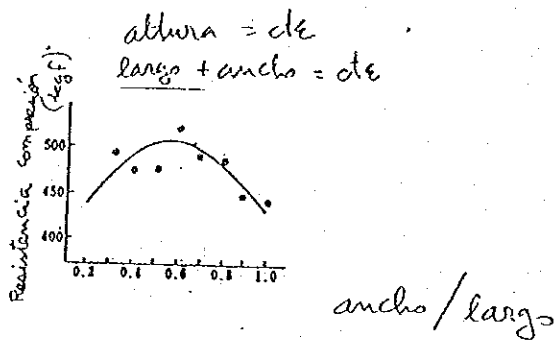 altura = cte
largo + ancho = cte
Resistencia compresión
(kgf)
500
450
400
0.2 0.4 0.6 0.8 1.0
ancho / largo